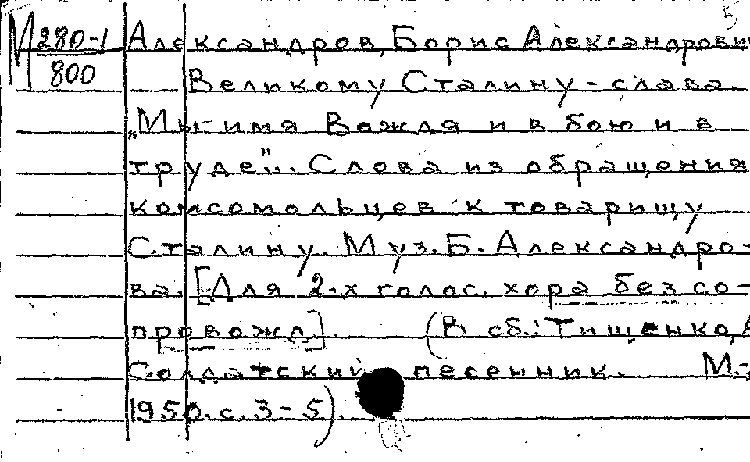 5
М 280-1 Александров, Борис Александрович
800
Великому Сталину - слава
„Мы имя Вождя и в бою и в
труде". Слова из обращения
комсомольцев к товарищу
Сталину. Муз. Б. Александро-
ва. [Для 2-х голос. хора без со-
провожд]. (В сб.: Тищенко,
Солдатский песенник. М.-
1950. с. 3-5).